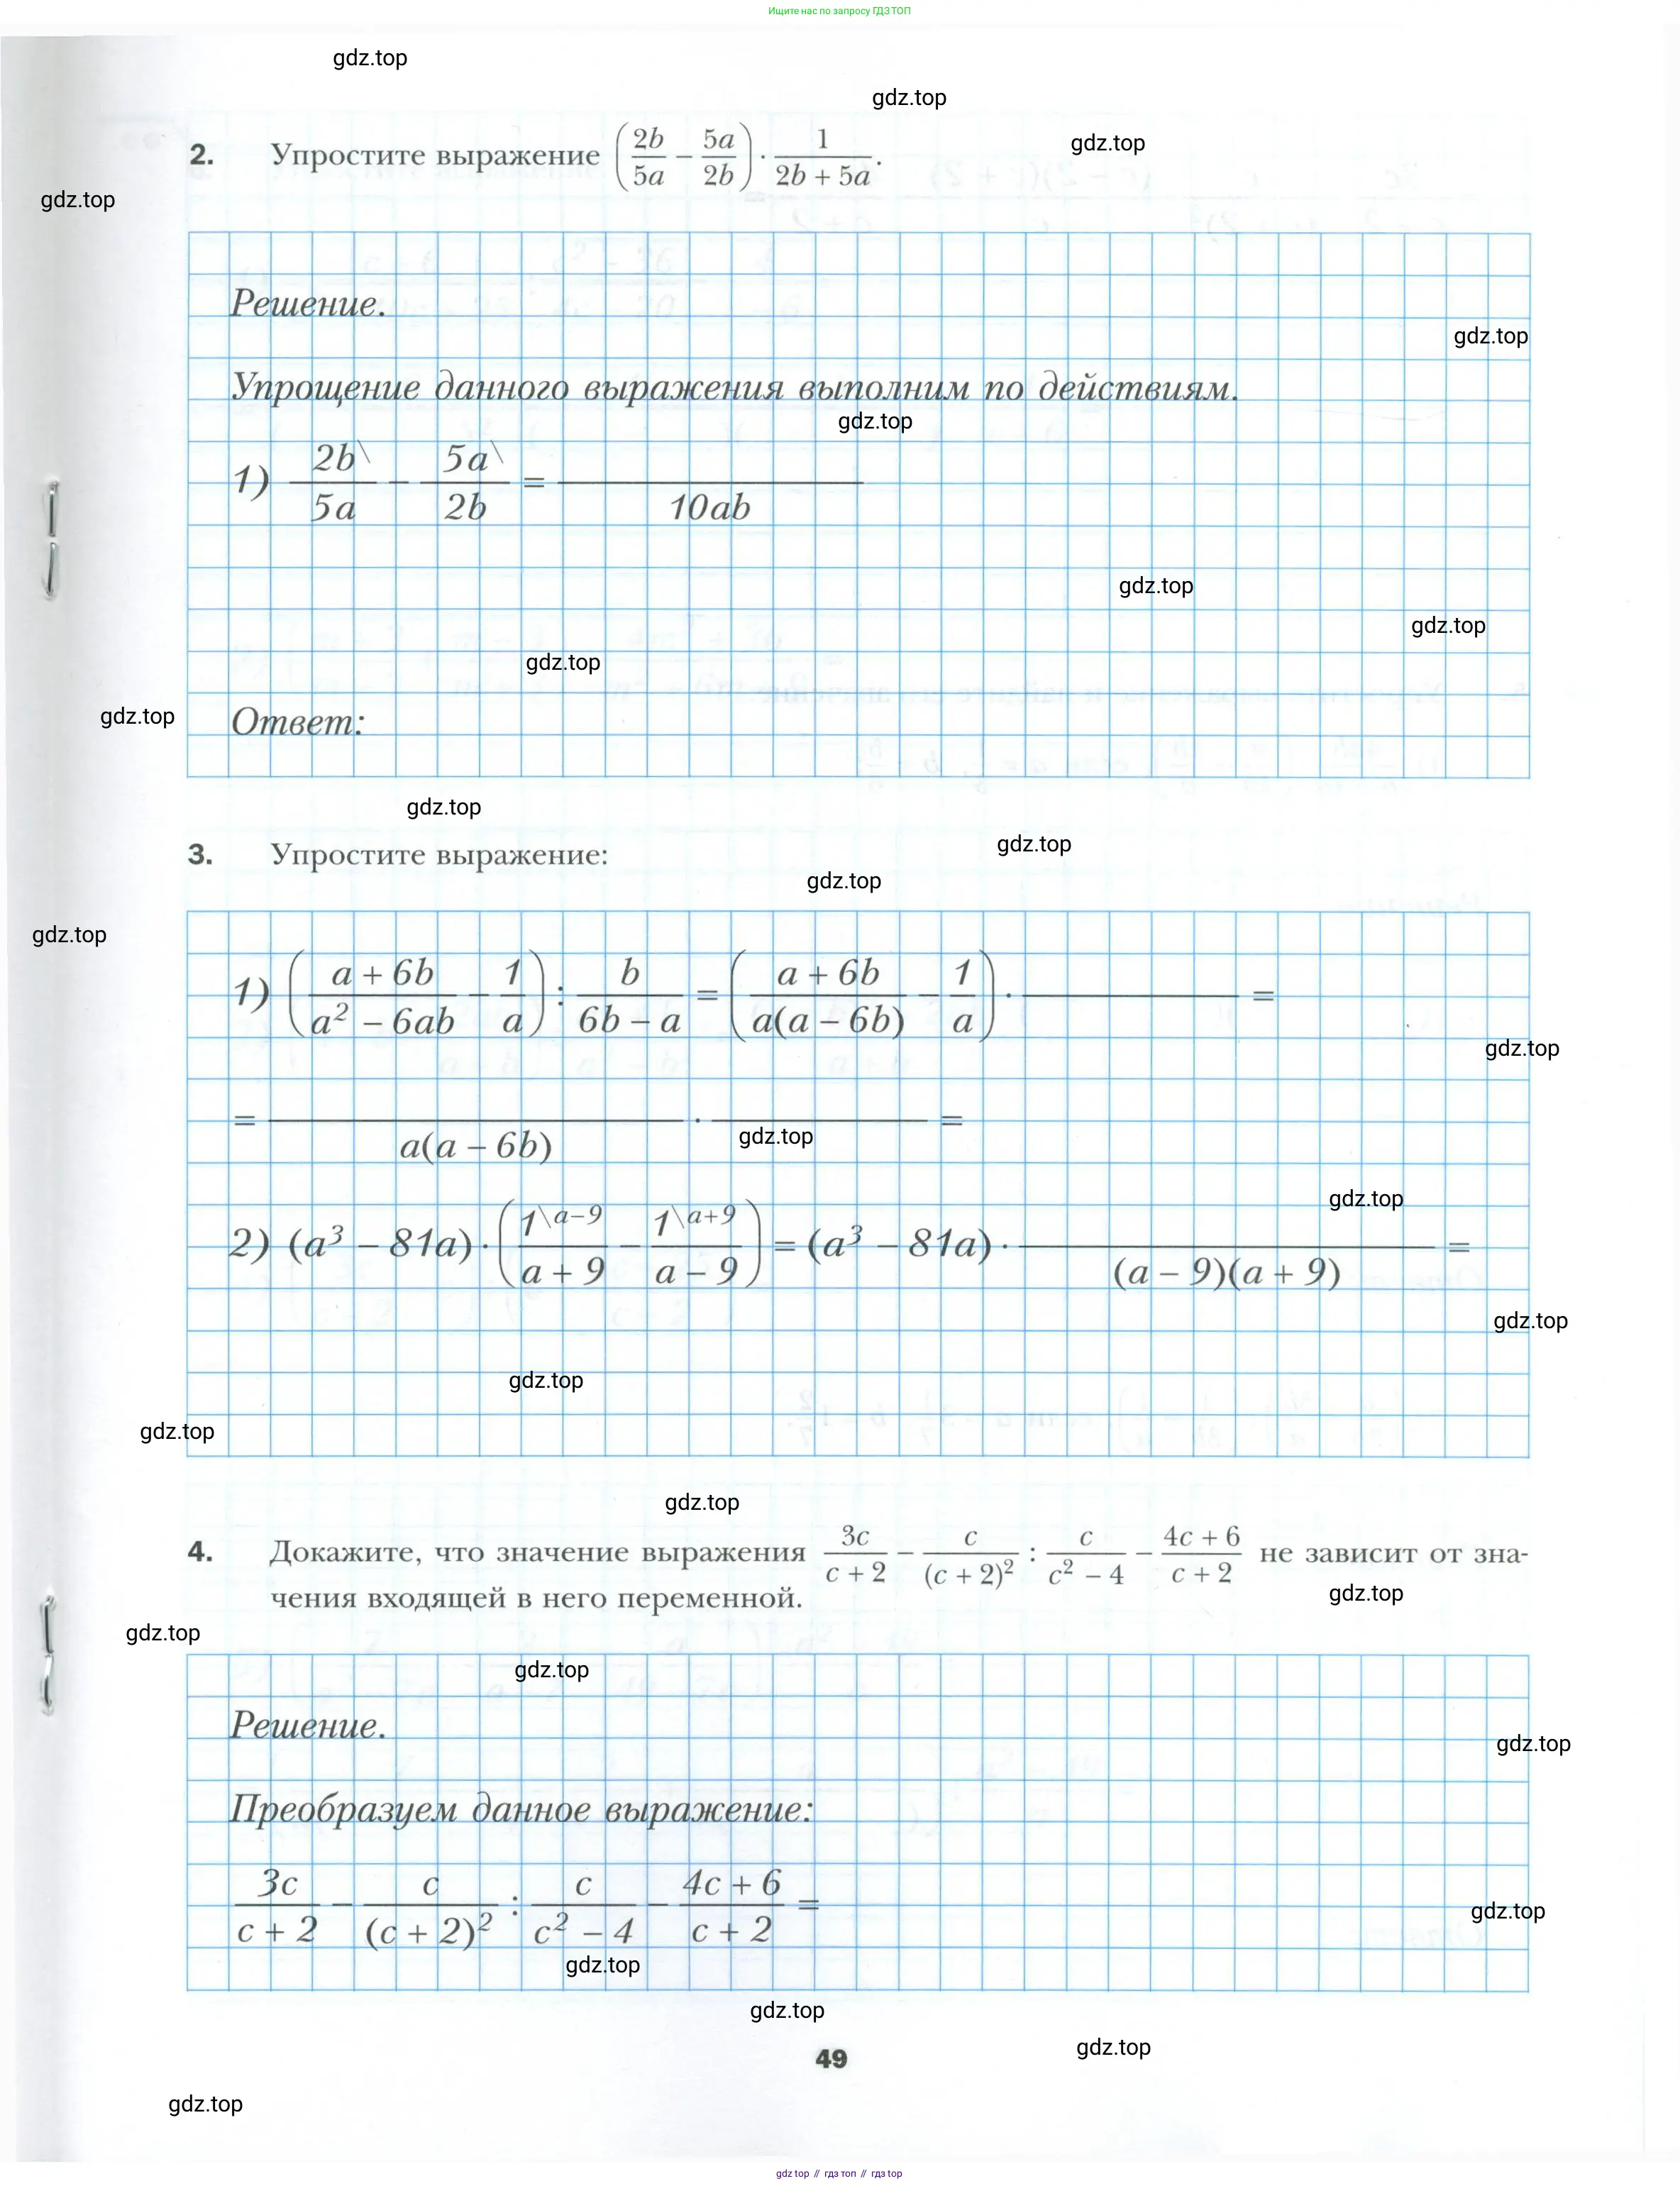 Ищите нас по запросу ГДЗ ТОП
gdz.top
gdz.top
gdz.top
2. Упростите выражение (2b/5a − 5a/2b) · 1/(2b + 5a).
gdz.top
Решение.
gdz.top
Упрощение данного выражения выполним по действиям.
gdz.top
1) 2b\/5a − 5a\/2b = ———/10ab
gdz.top
gdz.top
gdz.top
gdz.top
Ответ:
gdz.top
gdz.top
3. Упростите выражение:
gdz.top
gdz.top
1) ((a + 6b)/(a² − 6ab) − 1/a) : b/(6b − a) = ((a + 6b)/(a(a − 6b)) − 1/a) · ——— =
gdz.top
= ———/(a(a − 6b)) · ——— =
gdz.top
gdz.top
2) (a³ − 81a) · (1\a−9/(a + 9) − 1\a+9/(a − 9)) = (a³ − 81a) · ———/((a − 9)(a + 9)) =
gdz.top
gdz.top
gdz.top
gdz.top
4. Докажите, что значение выражения 3c/(c + 2) − c/(c + 2)² : c/(c² − 4) − (4c + 6)/(c + 2) не зависит от зна-
чения входящей в него переменной.
gdz.top
gdz.top
gdz.top
Решение.
gdz.top
Преобразуем данное выражение:
3c/(c + 2) − c/(c + 2)² : c/(c² − 4) − (4c + 6)/(c + 2) =
gdz.top
gdz.top
gdz.top
gdz.top
49
gdz.top
gdz top // гдз топ // гдз top